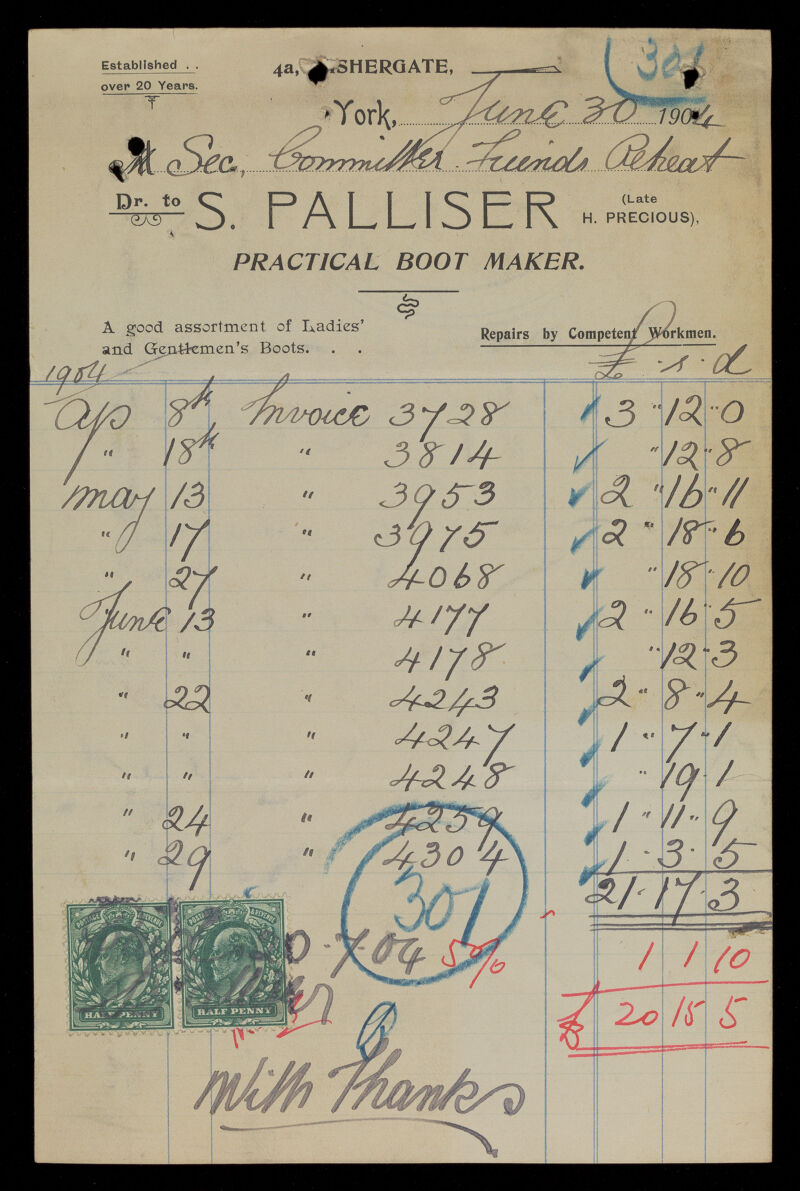 Established . .
over 20 Years.
4a, SHERGATE,
301
York, June 30 1904
Sec, Committee Friends Retreat
Dr. to S. PALLISER (Late
H. PRECIOUS),
PRACTICAL BOOT MAKER.
A good assortment of Ladies'
and Gentlemen's Boots. . .
Repairs by Competent Workmen.
1904
£ . s . d
Ap 8th Invoice 3728 3 " 12 " 0
" 18th " 3814 " 12 " 8
May 13 " 3953 2 " 16 " 11
" 17 " 3975 2 " 18 " 6
" 27 " 4068 " 18 " 10
June 13 " 4177 2 " 16 " 5
" " " 4178 " 12 " 3
" 22 " 4243 2 " 8 " 4
" " " 4247 1 " 7 " 1
" " " 4248 " 19 . 1
" 24 " 4259 1 " 11 " 9
" 29 " 4304 1 . 3 . 5
21 . 17 . 3
301
. 7 . 04 5% 1 1 10
£ 20 15 5
POSTAGE & REVENUE
HALF PENNY
POSTAGE & REVENUE
HALF PENNY
With Thanks